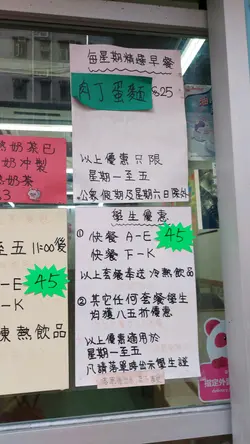 每星期精選早餐
肉丁蛋麵 $25
以上優惠只限
星期一至五
公眾假期及星期六日除外
奶茶已
奶冲製
奶茶
.3
至五 11:00後
-E 45
-K
凍熱飲品
學生優惠
① 快餐 A-E 45
快餐 F-K
以上套餐奉送 冷熱飲品
② 其它任何套餐學生
均獲八五折優惠
以上優惠適用於
星期一至五
凡請落單時出示學生證
指定外